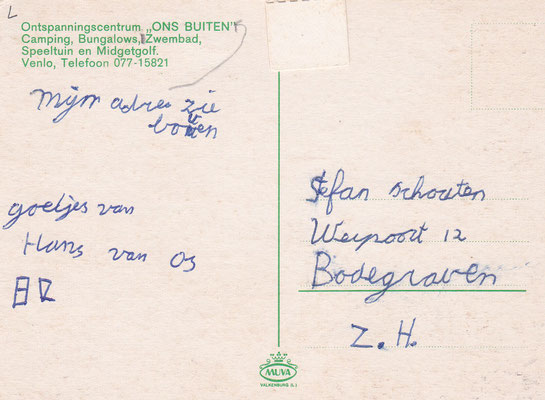 Ontspanningscentrum „ONS BUITEN"
Camping, Bungalows, Zwembad,
Speeltuin en Midgetgolf.
Venlo, Telefoon 077-15821
Mijn adres zie
boven
goetjes van
Hans van Os
Stefan schouten
Weypoort 12
Bodegraven
Z.H.
MUVA
VALKENBURG (L.)